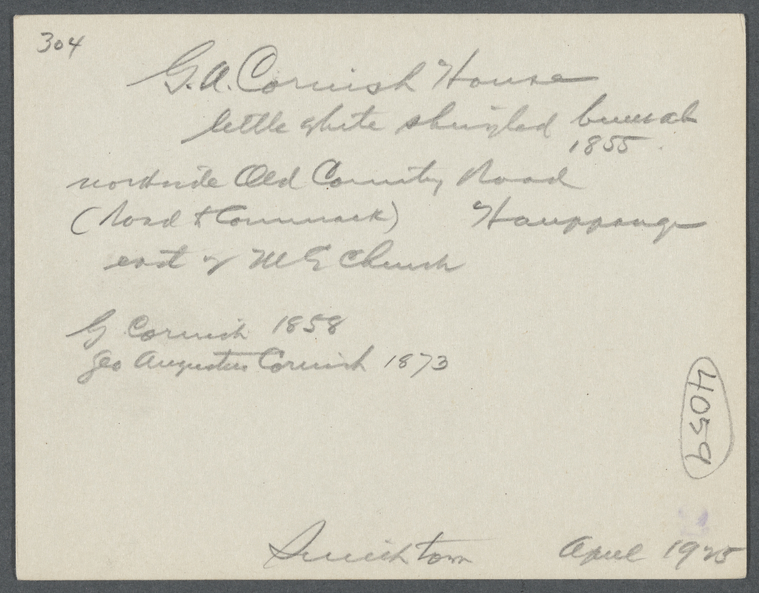 304
G.A. Cornish House
little white shingled
1855.
northside Old County Road
(Road to Commack) Hauppauge
east of M E Church
G Cornish 1858
Geo Augustus Cornish 1873
4059
Smithtown April 1925